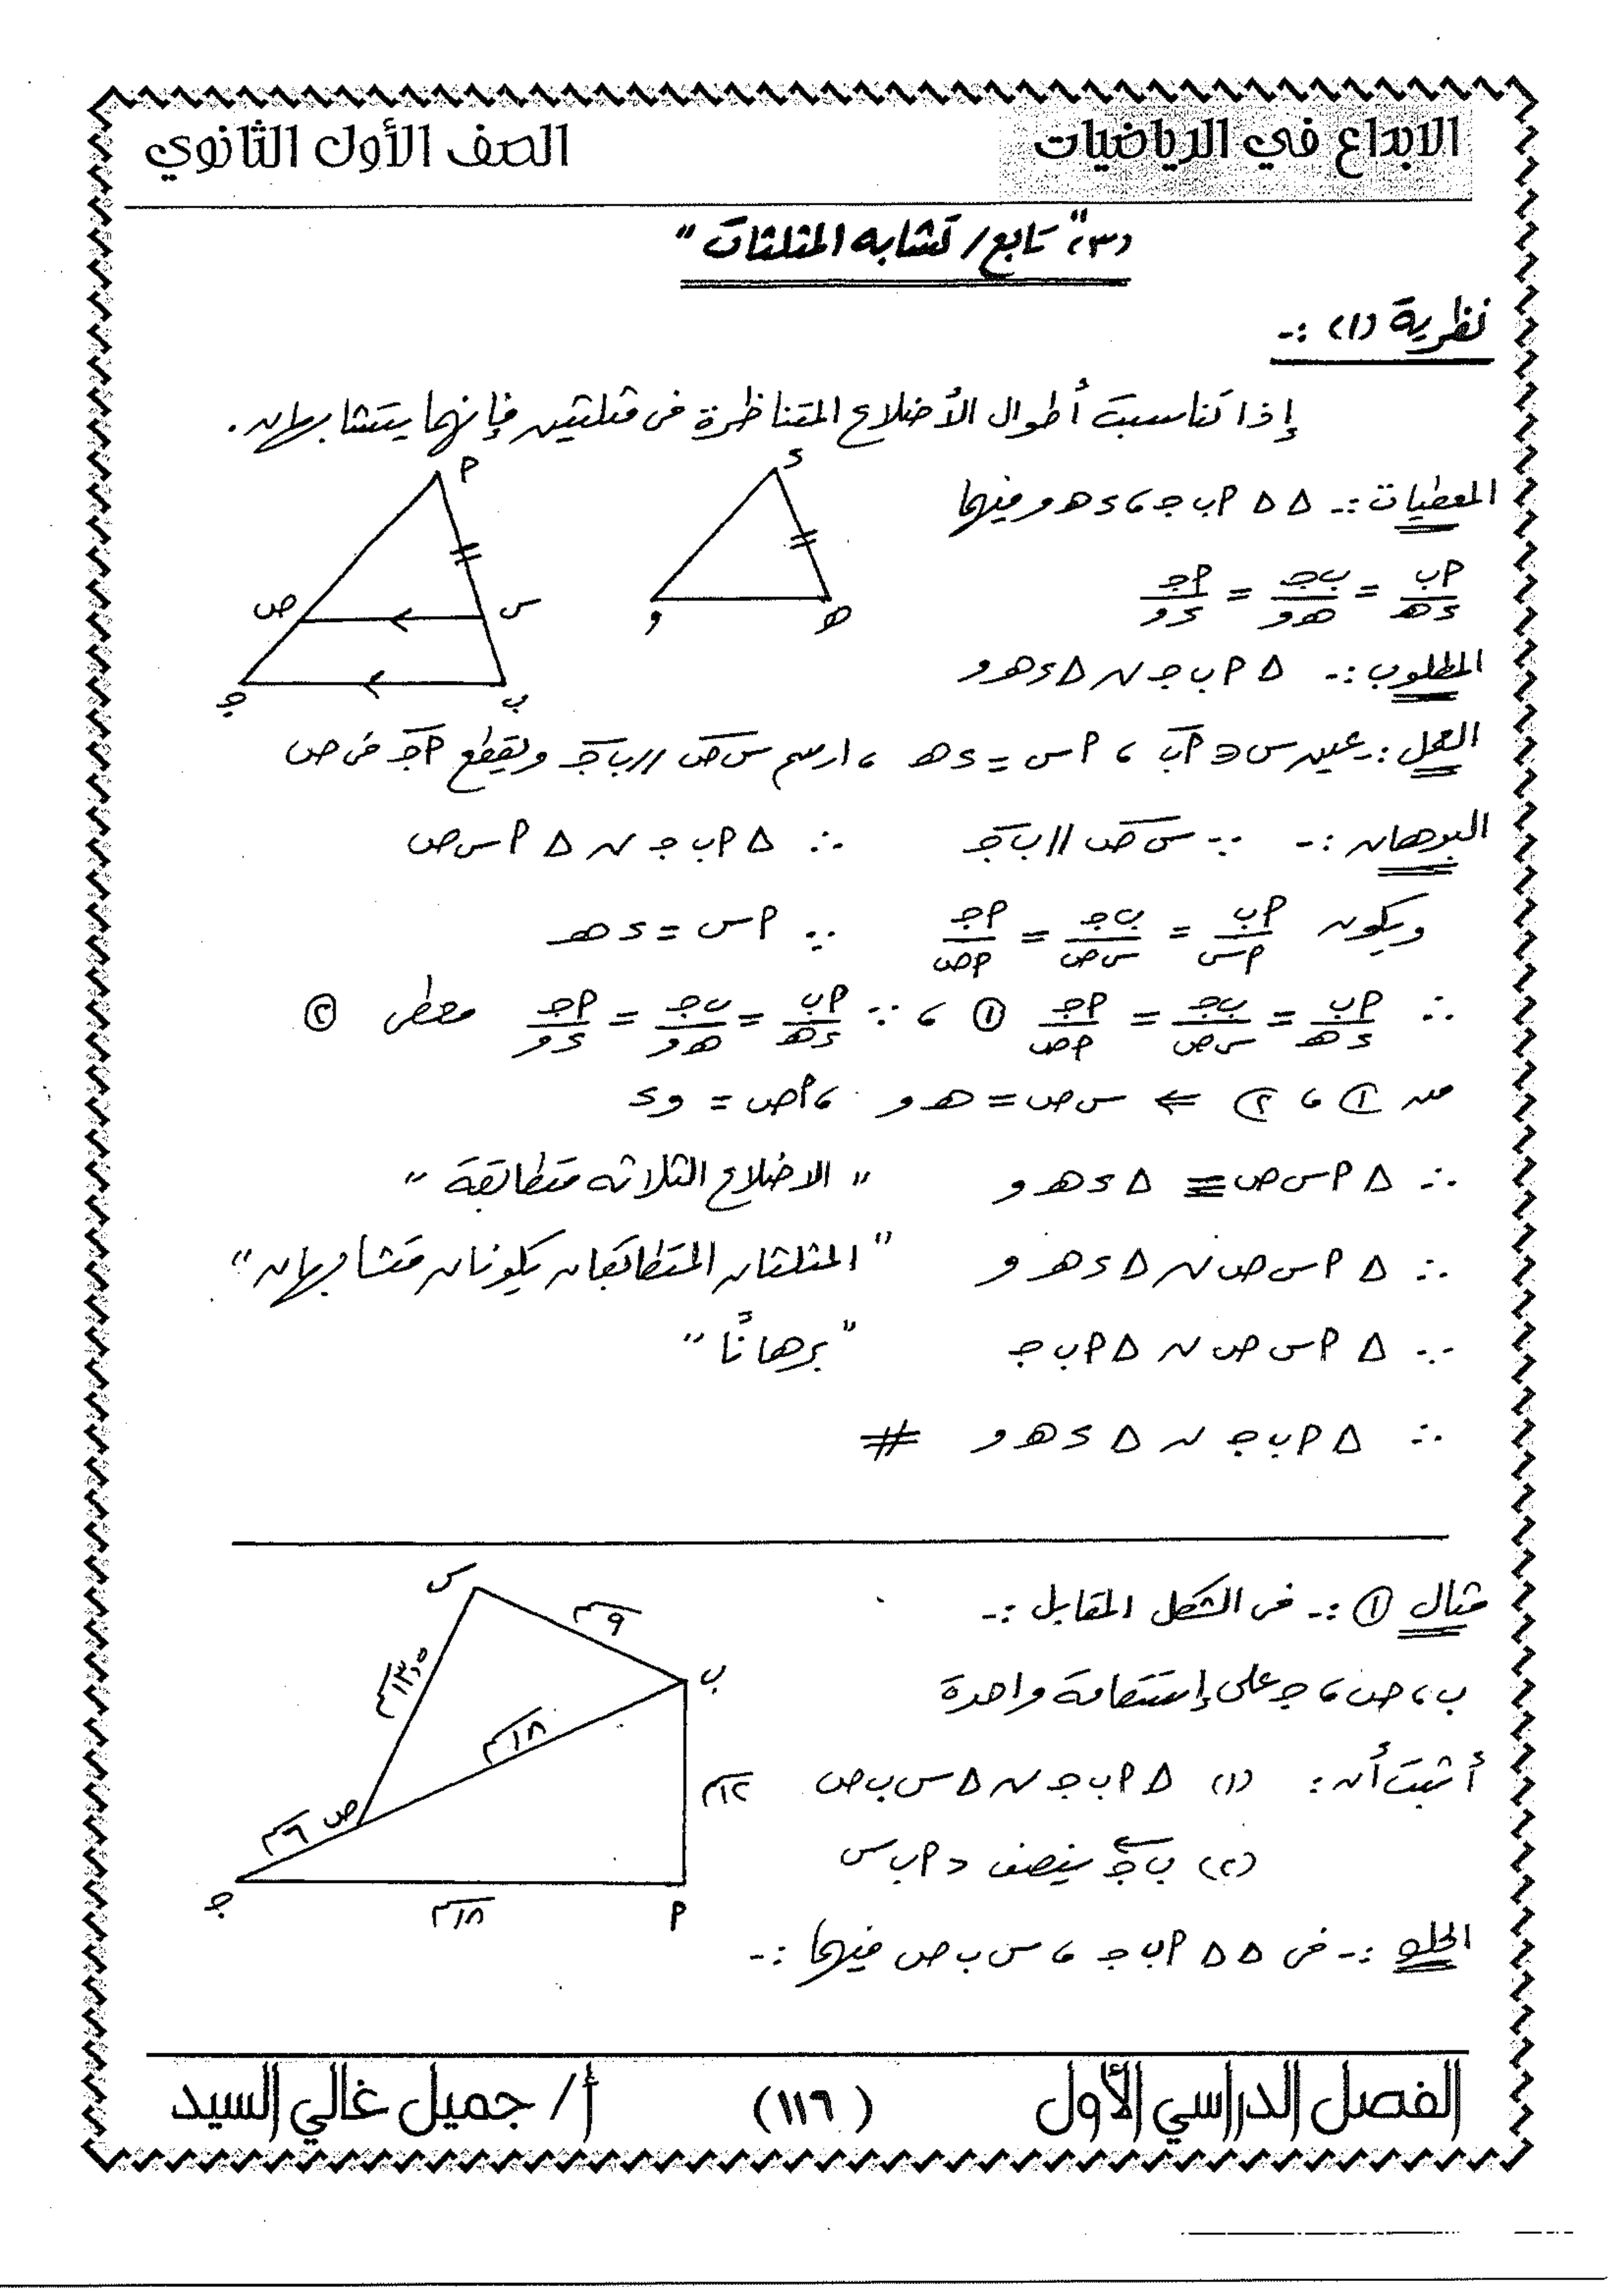 الابداع في الرياضيات
الصف الأول الثانوي
(٣) " تابع / تشابه المثلثات "
نظرية (١) :-
إذا تناسبت أطوال الأضلاع المتناظرة فى مثلثين فإنهما يتشابهان .
المعطيات :- Δ Δ ٩ ب جـ ، ء هـ و فيهما
٩ب/ء هـ = ب جـ/هـ و = ٩جـ/ء و
المطلوب :- Δ ٩ ب جـ ~ Δ ء هـ و
العمل :- عين س ∈ ٩ب ، ٩س = ء هـ ، ارسم س ص // ب جـ ويقطع ٩جـ فى ص
البرهان :- ∵ س ص // ب جـ ∴ Δ ٩ ب جـ ~ Δ ٩ س ص
ويكون ٩ب/٩س = ب جـ/س ص = ٩جـ/٩ص ∵ ٩س = ء هـ
∴ ٩ب/ء هـ = ب جـ/س ص = ٩جـ/٩ص ① ، ∵ ٩ب/ء هـ = ب جـ/هـ و = ٩جـ/ء و معطى ②
من ① ، ② ⇐ س ص = هـ و ، ٩ص = و ء
∴ Δ ٩ س ص ≡ Δ ء هـ و " الاضلاع الثلاثه متطابقة "
∴ Δ ٩ س ص ~ Δ ء هـ و " المثلثان المتطابقان يكونان متشابهان "
∵ Δ ٩ س ص ~ Δ ٩ ب جـ " برهانًا "
∴ Δ ٩ ب جـ ~ Δ ء هـ و #
٩
ء
س
ص
هـ
و
ب
جـ
مثال ① :- فى الشكل المقابل :-
ب ، ص ، جـ على إستقامة واحدة
أثبت أن : (١) Δ ٩ ب جـ ~ Δ س ب ص
(٢) ب جـ ينصف > ٩ ب س
س
٩سم
١٣,٥سم
ب
١٨سم
١٢سم
ص
٦سم
جـ
١٨سم
٩
الحل :- فى Δ Δ ٩ ب جـ ، س ب ص فيهما :-
الفصل الدراسي الأول
( ١١٦ )
أ / جميل غالي السيد